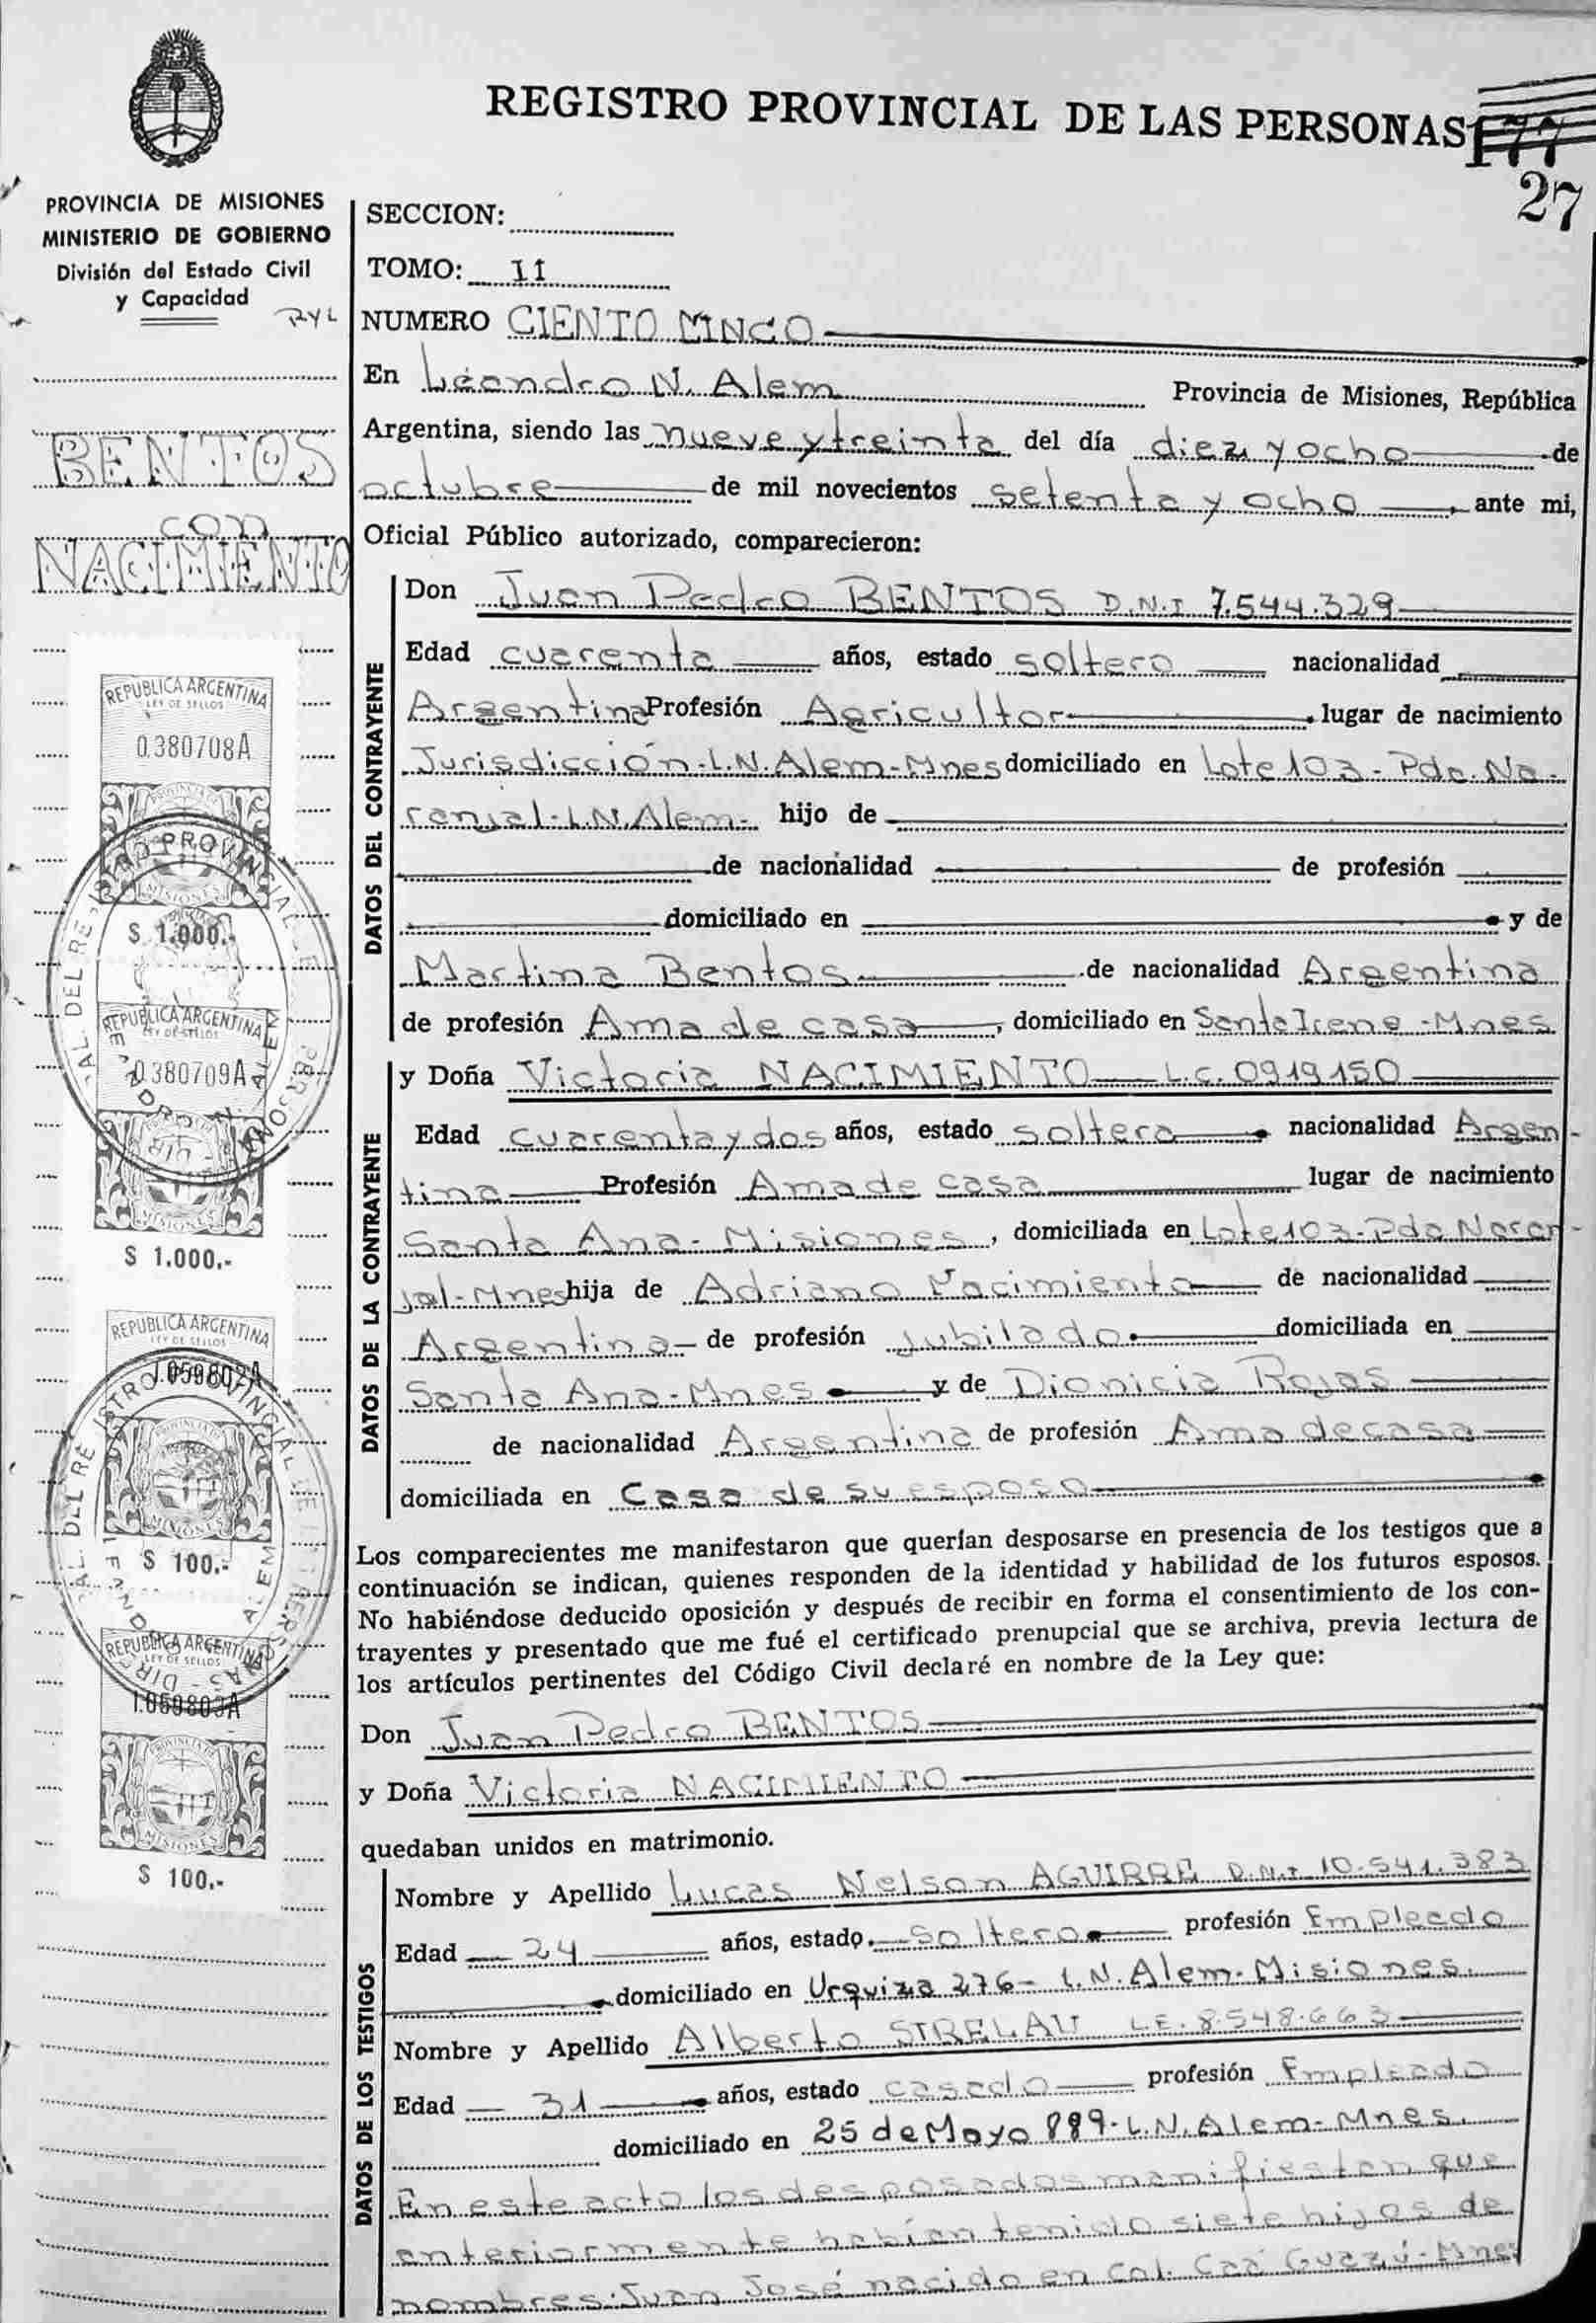 REGISTRO PROVINCIAL DE LAS PERSONAS
177
27
PROVINCIA DE MISIONES
MINISTERIO DE GOBIERNO
División del Estado Civil
y Capacidad
RYL
BENTOS
con
NACIMIENTO
SECCION:
TOMO: II
NUMERO CIENTO CINCO
En Leandro N. Alem Provincia de Misiones, República
Argentina, siendo las nueve y treinta del día diez y ocho de
octubre de mil novecientos setenta y ocho, ante mi,
Oficial Público autorizado, comparecieron:
DATOS DEL CONTRAYENTE
Don Juan Pedro BENTOS D.N.I 7.544.329
Edad cuarenta años, estado soltero nacionalidad
Argentina Profesión Agricultor lugar de nacimiento
Jurisdicción-L.N.Alem-Mnes domiciliado en Lote 103-Pdo. Na-
ranjal-L.N.Alem- hijo de
de nacionalidad de profesión
domiciliado en y de
Martina Bentos de nacionalidad Argentina
de profesión Ama de casa, domiciliado en Santa Irene-Mnes
DATOS DE LA CONTRAYENTE
y Doña Victoria NACIMIENTO L.C. 0919150
Edad cuarenta y dos años, estado soltera nacionalidad Argen-
tina Profesión Ama de casa lugar de nacimiento
Santa Ana-Misiones, domiciliada en Lote 103-Pdo Naran-
jal-Mnes hija de Adriano Nacimiento de nacionalidad
Argentina de profesión jubilado. domiciliada en
Santa Ana-Mnes y de Dionicia Rojas
de nacionalidad Argentina de profesión Ama de casa
domiciliada en Casa de su esposo
Los comparecientes me manifestaron que querían desposarse en presencia de los testigos que a
continuación se indican, quienes responden de la identidad y habilidad de los futuros esposos.
No habiéndose deducido oposición y después de recibir en forma el consentimiento de los con-
trayentes y presentado que me fué el certificado prenupcial que se archiva, previa lectura de
los artículos pertinentes del Código Civil declaré en nombre de la Ley que:
Don Juan Pedro BENTOS
y Doña Victoria NACIMIENTO
quedaban unidos en matrimonio.
DATOS DE LOS TESTIGOS
Nombre y Apellido Lucas Nelson AGUIRRE D.N.I 10.541.383
Edad 24 años, estado soltero profesión Empleado
domiciliado en Urquiza 276- L.N.Alem-Misiones.
Nombre y Apellido Alberto STRELAU L.E. 8.548.663
Edad 31 años, estado casado profesión Empleado
domiciliado en 25 de Mayo 889-L.N.Alem-Mnes.
En este acto los desposados manifiestan que
anteriormente habían tenido siete hijos de
nombres: Juan José nacido en Col. Caá Guazú-Mnes
REPUBLICA ARGENTINA
LEY DE SELLOS
0.380708A
MISIONES
$ 1.000.-
REPUBLICA ARGENTINA
LEY DE SELLOS
0.380709A
MISIONES
$ 1.000.-
REPUBLICA ARGENTINA
LEY DE SELLOS
1.059802A
MISIONES
$ 100.-
REPUBLICA ARGENTINA
LEY DE SELLOS
1.059803A
MISIONES
$ 100.-